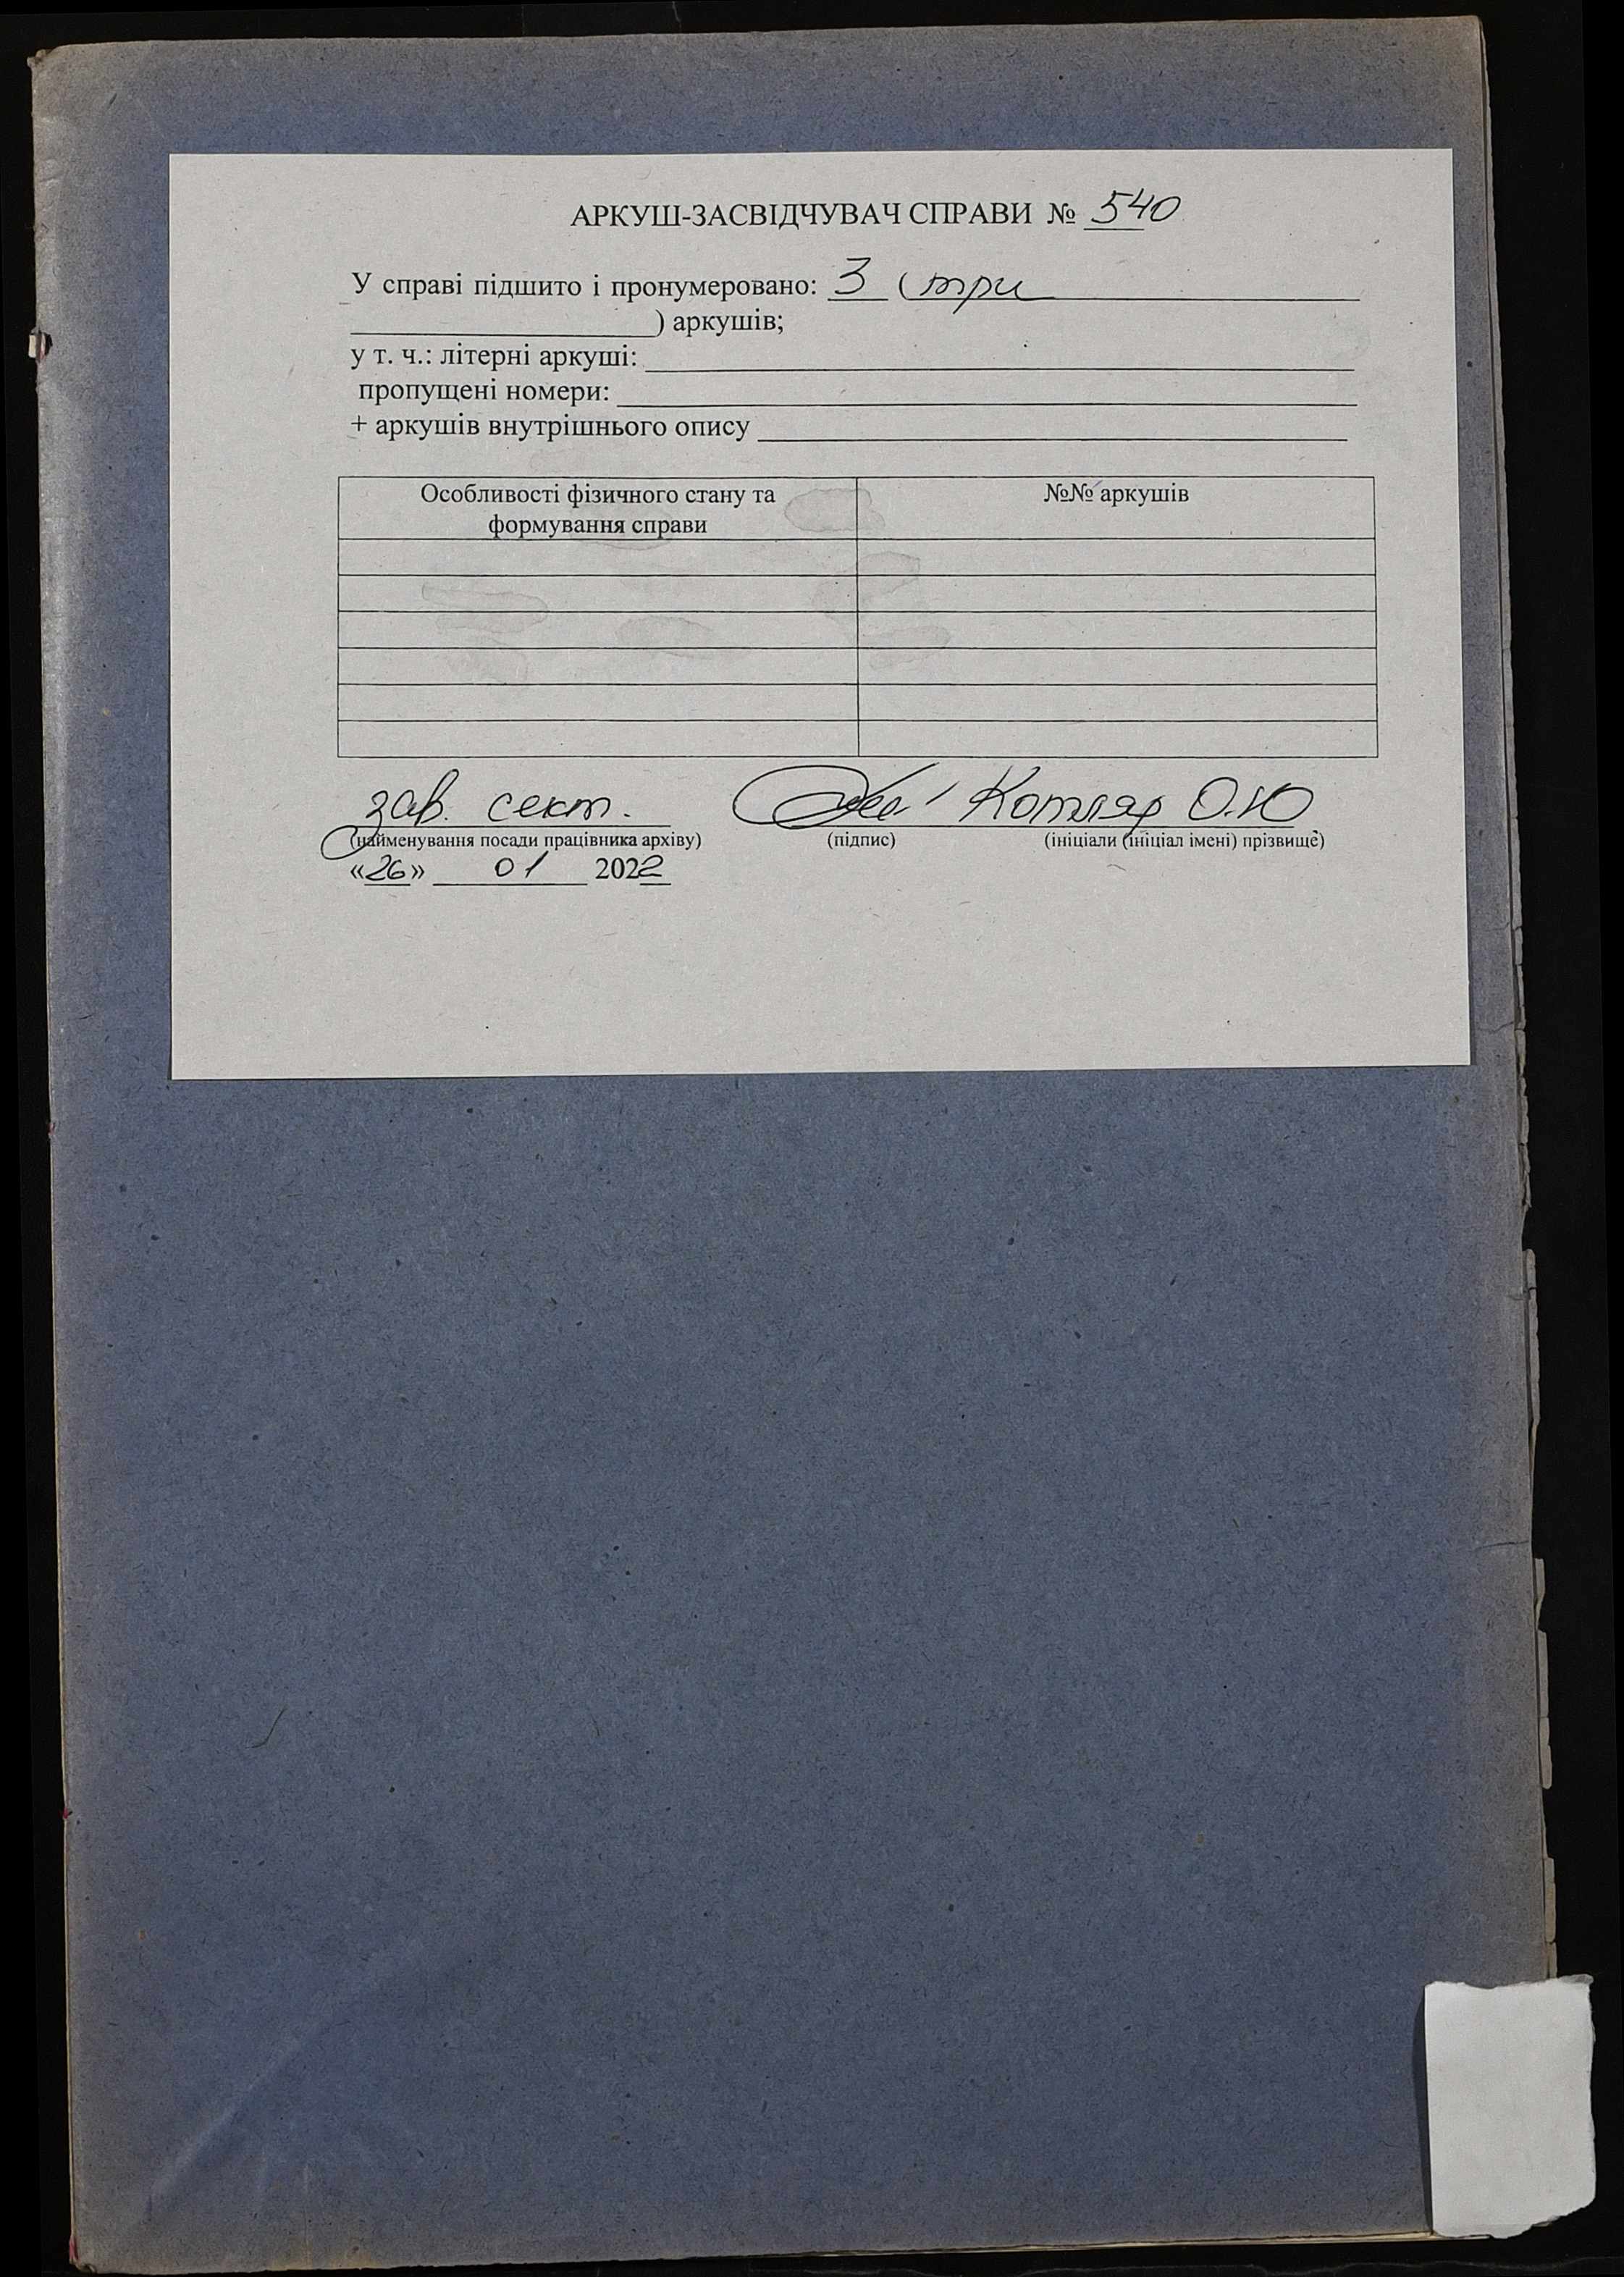 АРКУШ-ЗАСВІДЧУВАЧ СПРАВИ № 540
У справі підшито і пронумеровано: 3 ( три
) аркушів;
у т. ч.: літерні аркуші:
пропущені номери:
+ аркушів внутрішнього опису
Особливості фізичного стану та
формування справи
№№ аркушів
зав. сект. Котляр О.Ю
(найменування посади працівника архіву) (підпис) (ініціали (ініціал імені) прізвище)
«26» 01 2022